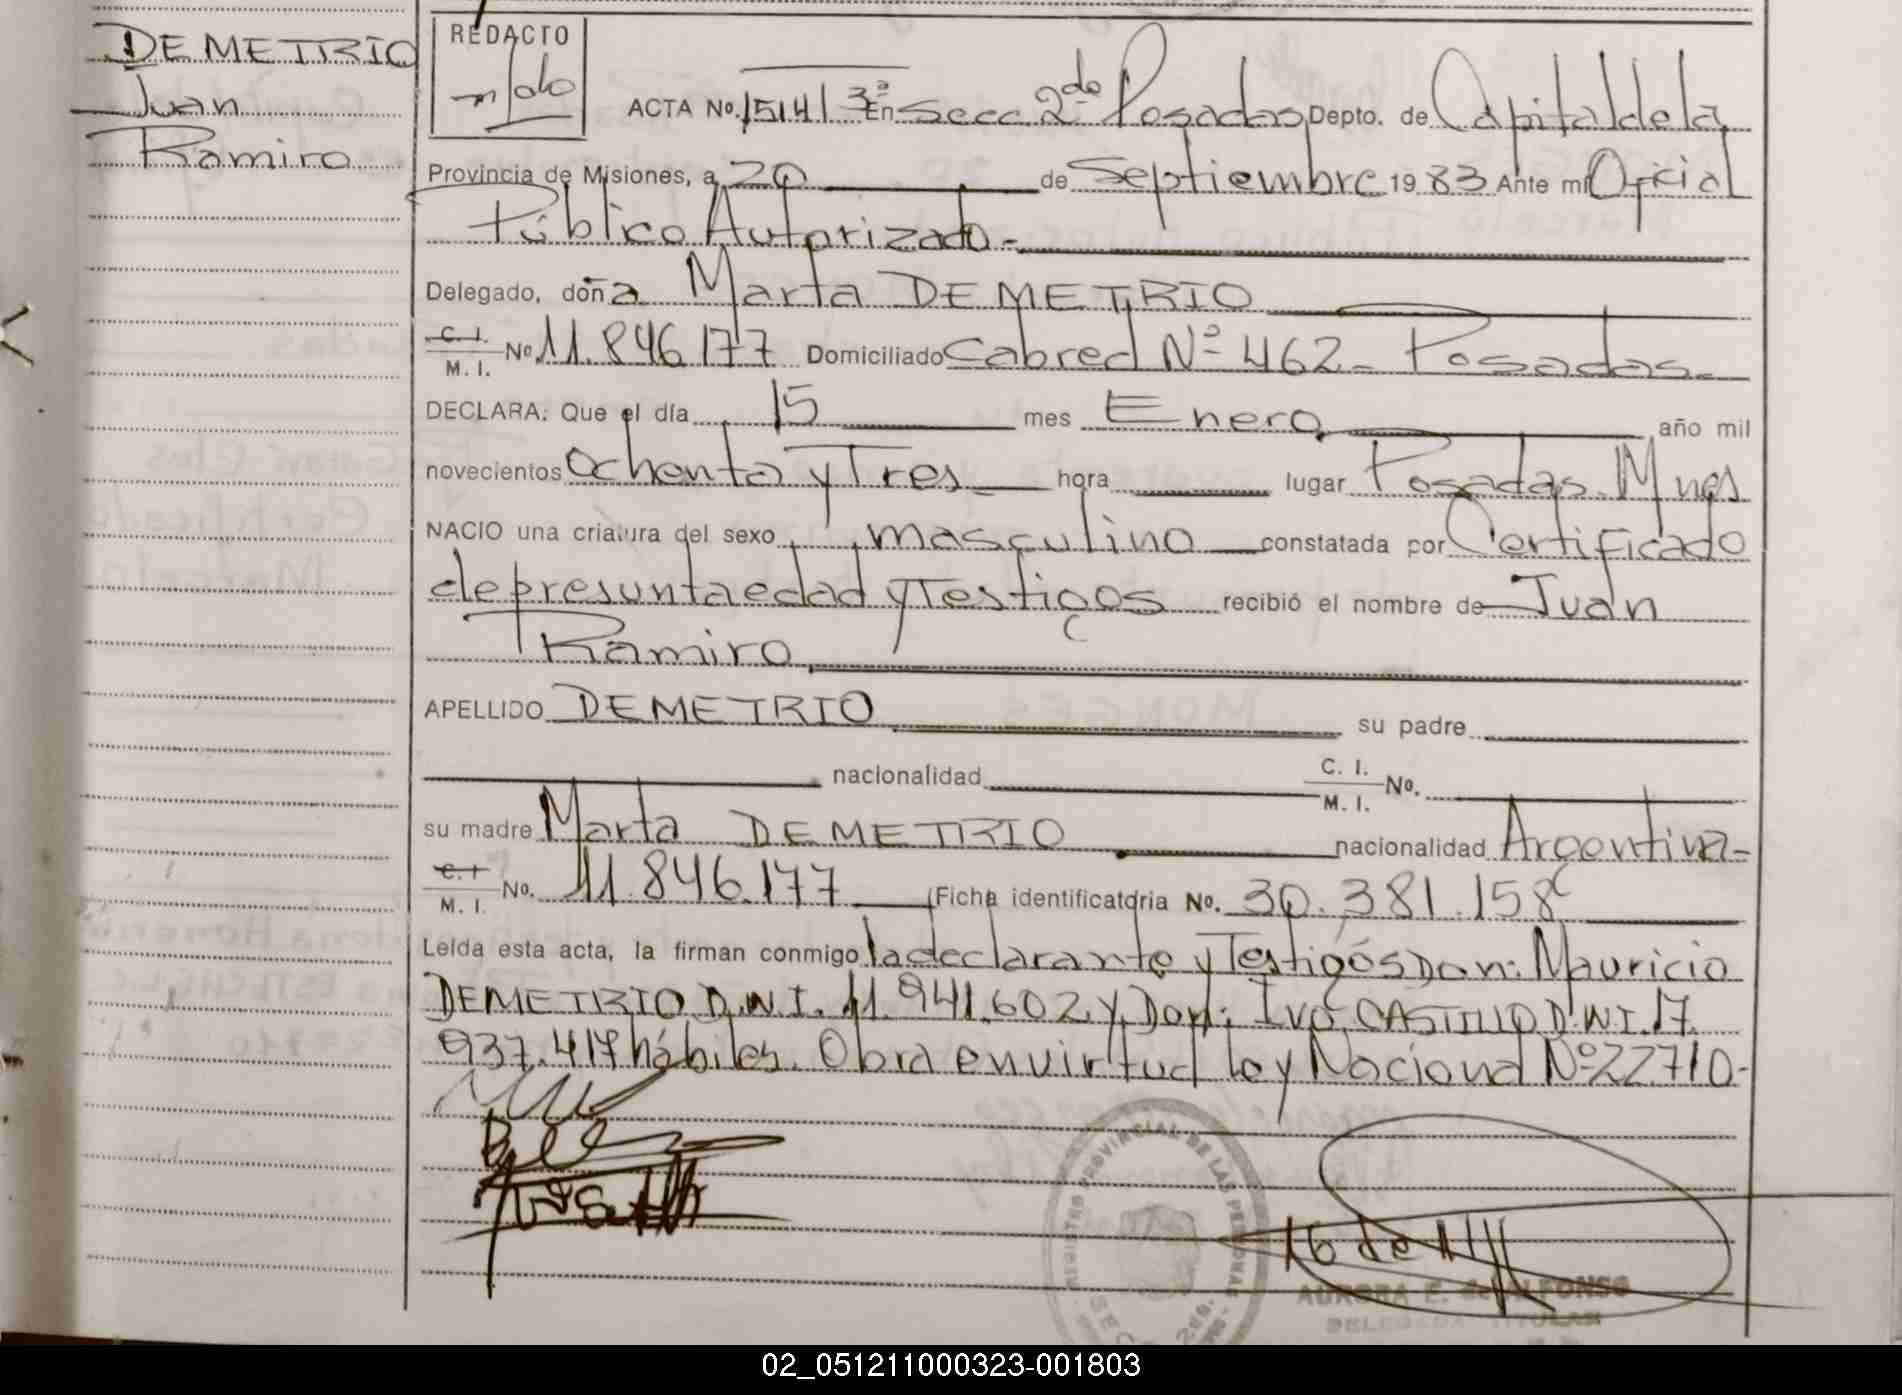 DEMETRIO
Juan
Ramiro
REDACTO
ACTA No. 1514 | 3ª En Secc 2da Posadas Depto. de Capital de la
Provincia de Misiones, a 20 de Septiembre 19 83 Ante mi Oficial
Público Autorizado -
Delegado, doña Marta DEMETRIO
C. I.
M. I. No. 11.846.177 Domiciliado Cabred Nº 462 - Posadas -
DECLARA: Que el día 15 mes Enero año mil
novecientos ochenta y Tres hora lugar Posadas. Mnes
NACIO una criatura del sexo masculino constatada por Certificado
de presunta edad y Testigos recibió el nombre de Juan
Ramiro
APELLIDO DEMETRIO su padre
nacionalidad C. I.
M. I. No.
su madre Marta DEMETRIO nacionalidad Argentina -
C. I
M. I. No. 11.846.177 Ficha identificatoria No. 30.381.158
Leída esta acta, la firman conmigo la declarante y Testigos Don: Mauricio
DEMETRIO D.N.I. 11.941.602 y Don: Ivo CASTILLO D.N.I. 17.
937.417 hábiles. Obra en virtud ley Nacional Nº 22710 -
REGISTRO PROVINCIAL DE LAS PERSONAS
SECC. 2da.
AURORA E. de ALFONSO
DELEGADA TITULAR
02_051211000323-001803